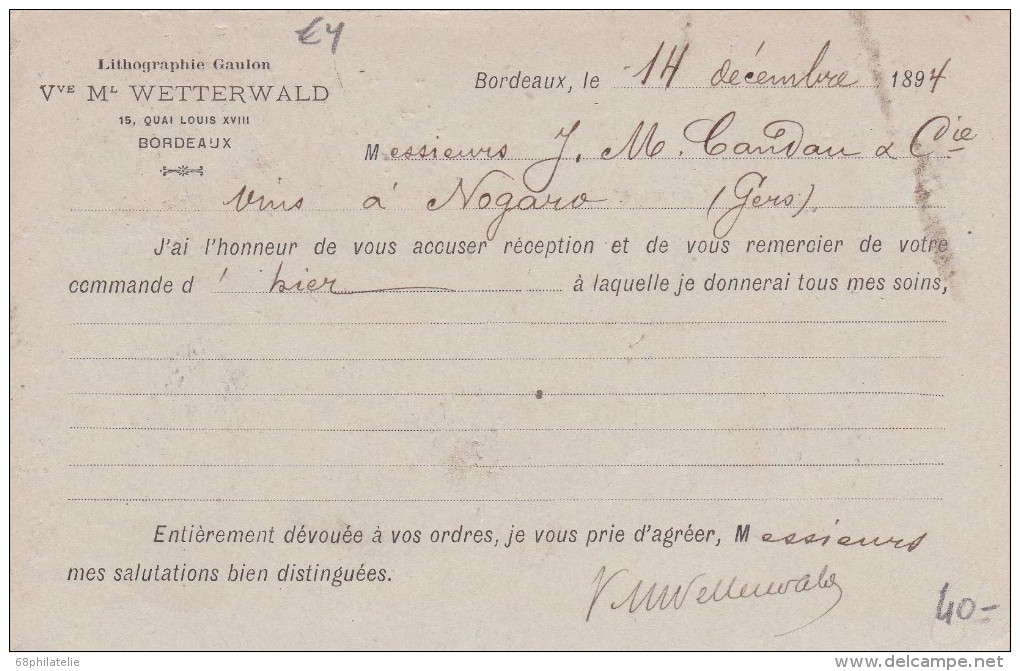 €4
Lithographie Gaulon
Vve Ml WETTERWALD
15, QUAI LOUIS XVIII
BORDEAUX
Bordeaux, le 14 décembre 1894
Messieurs J. M. Candau & Cie
vins à Nogaro (Gers)
J'ai l'honneur de vous accuser réception et de vous remercier de votre
commande d'hier à laquelle je donnerai tous mes soins,
Entièrement dévouée à vos ordres, je vous prie d'agréer, Messieurs
mes salutations bien distinguées.
V Ml Wetterwald
40-
68philatelie
delcampe.net